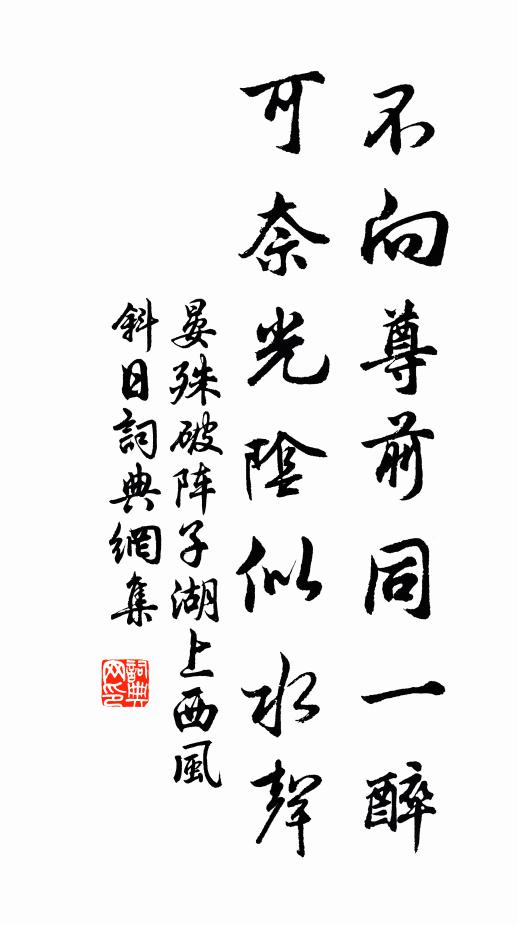 不向尊前同一醉
可奈光陰似水聲
晏殊破阵子湖上西風
斜日詞典網集
詞典
网印